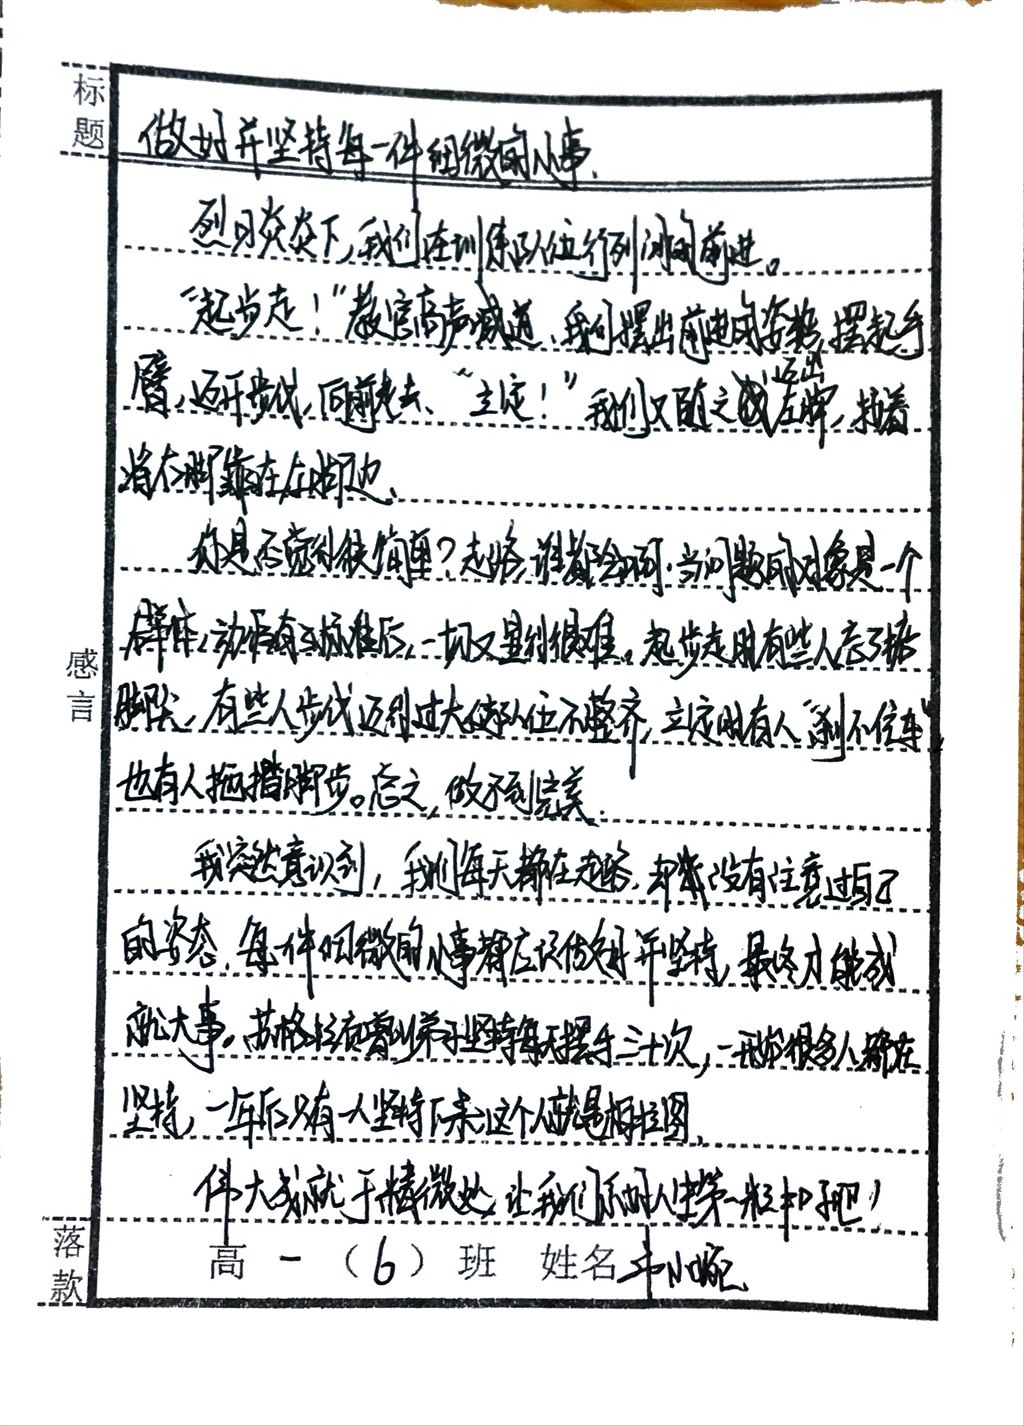 标题
做好并坚持每一件细微的小事.
烈日炎炎下,我们在训练队伍行列间前进。
“起步走!”教官高声喊道,我们摆出前进的姿势,摆起手
迈出
臂,迈开步伐,向前走去、“立定!”我们又随之左脚,接着
将右脚靠在左脚边、
你是否觉得很简单?走路谁都会啊.当问题的对象是一个
群体,动作有了标准后,一切又显得很难。起步走时有些人忘了
感言
脚尖,有些人步伐迈得过大使队伍不整齐,立定时有人“刹不住车”,
也有人拖踏脚步。总之,做不到完美.
我突然意识到,我们每天都在走路,却没有注意过自己
的姿态.每一件细微的小事都应该做好并坚持,最终才能成
就大事。苏格拉底曾叫弟子坚持每天摆手三十次,一开始很多人都在
坚持,一年后只有一人坚持下来,这个人就是柏拉图.
伟大成就于精微处,让我们系好人生第一粒扣子吧!
落款
高一(6)班 姓名